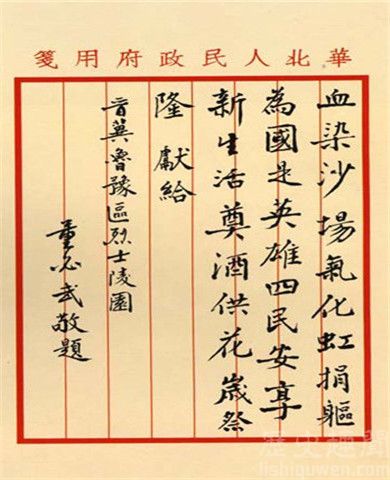 華北人民政府用箋
血染沙場氣化虹捐軀
為國是英雄四民安享
新生活奠酒供花歲祭
隆獻給
晉冀魯豫區烈士陵園
董必武敬題
歷史趣聞
lishiquwen.com